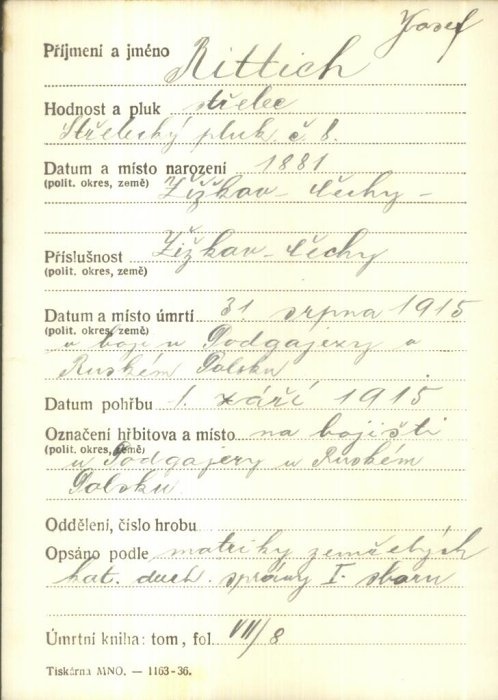 Josef
Příjmení a jméno Rittich
Hodnost a pluk střelec
Střelecký pluk č 8.
Datum a místo narození 1881
(polit. okres, země) Žižkov - Čechy -
Příslušnost Žižkov - Čechy
(polit. okres, země)
Datum a místo úmrtí 31. srpna 1915
(polit. okres, země)
v boji u Podgajezy v
Ruském Polsku
Datum pohřbu 1. září 1915
Označení hřbitova a místo na bojišti
(polit. okres, země)
u Podgajezy v Ruském
Polsku
Oddělení, číslo hrobu
Opsáno podle matriky zemřelých
kat. duch. správy I. sboru
Úmrtní kniha: tom, fol. VII/8
Tiskárna MNO. — 1163-36.